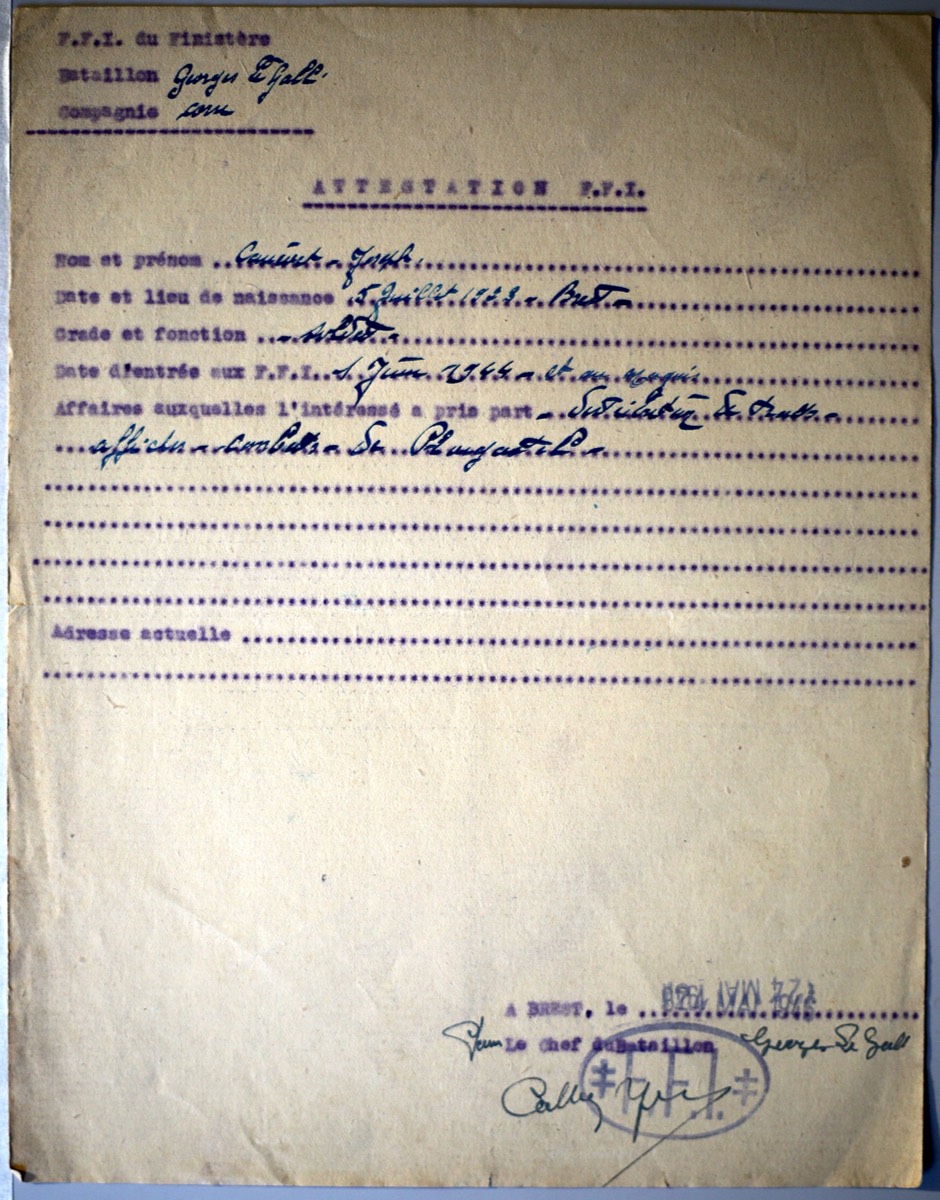 F.F.I. du Finistère
Bataillon Georges Le Gall.
Compagnie
ATTESTATION F.F.I.
Nom et prénom .. - Joseph.
Date et lieu de naissance . 5 Juillet - Brest -
Grade et fonction .. - soldat -
Date d'entrée aux F.F.I.. 1 Juin 1944 - et au maquis
Affaires auxquelles l'intéressé a pris part - distribution de tracts -
affiches - combats de Plougastel -
Adresse actuelle
A BREST, le 24 MAI
Pour Le Chef du Bataillon Georges Le Gall
F.F.I.